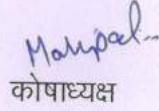 Mahipal
कोषाध्यक्ष